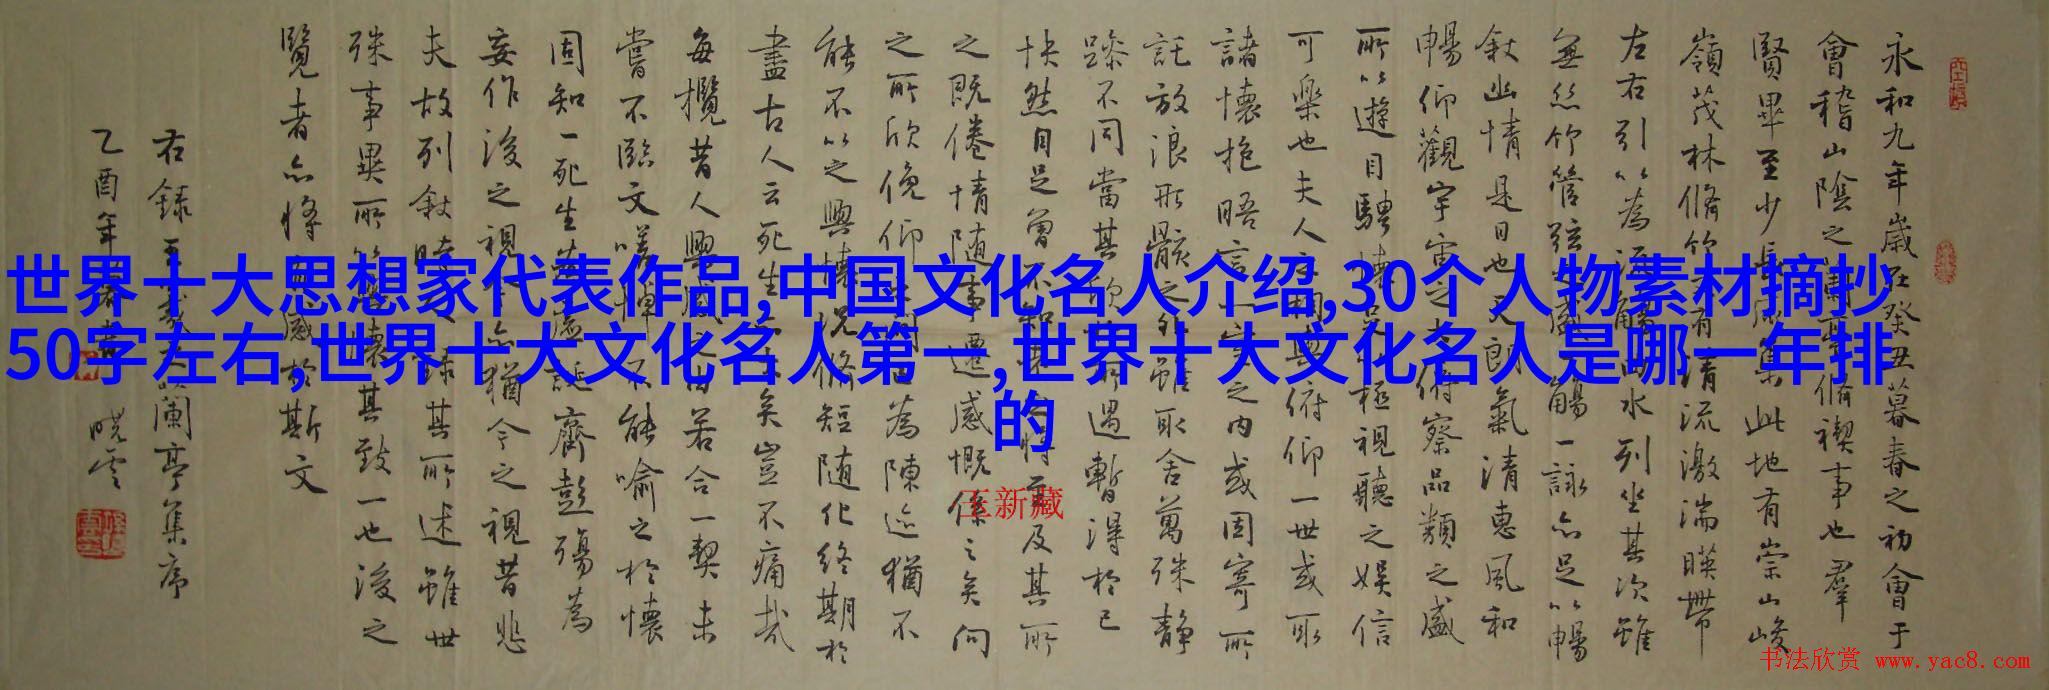 世界十大思想家代表作品,中国文化名人介绍,30个人物素材摘抄
50字左右,世界十大文化名人第一,世界十大文化名人是哪一年排
的
永和九年歲在癸丑暮春之初會于
會稽山陰之蘭亭脩禊事也羣
賢畢至少長咸集此地有崇山峻
嶺茂林脩竹又有清流激湍暎帶
左右引以為流觴曲水列坐其次雖
無絲竹管弦之盛一觴一詠亦足以暢
敘幽情是日也天朗氣清惠風和
暢仰觀宇宙之大俯察品類之盛
所以遊目騁懷足以極視聽之娛信
可樂也夫人之相與俯仰一世或取
諸懷抱晤言一室之內或因寄所
託放浪形骸之外雖取舍萬殊静
躁不同當其欣於所遇暫得於己
快然自足曾不知老之將至及其所
之既倦情随事遷感慨係之矣向
之所欣俛仰之間已為陳迹猶不
能不以之興懷況脩短随化終期於
盡古人云死生亦大矣豈不痛哉
每攬昔人興感之由若合一契未
嘗不臨文嗟悼不能喻之於懷
固知一死生為虛誕齊彭殤為
妄作後之視今亦猶今之視昔悲
夫故列敘時人錄其所述雖世
殊事異所以興懷其致一也後之
覽者亦將有感於斯文
右錄王羲之蘭亭集序
乙酉年春 曉雲
王新藏
书法欣赏 www.yac8.com